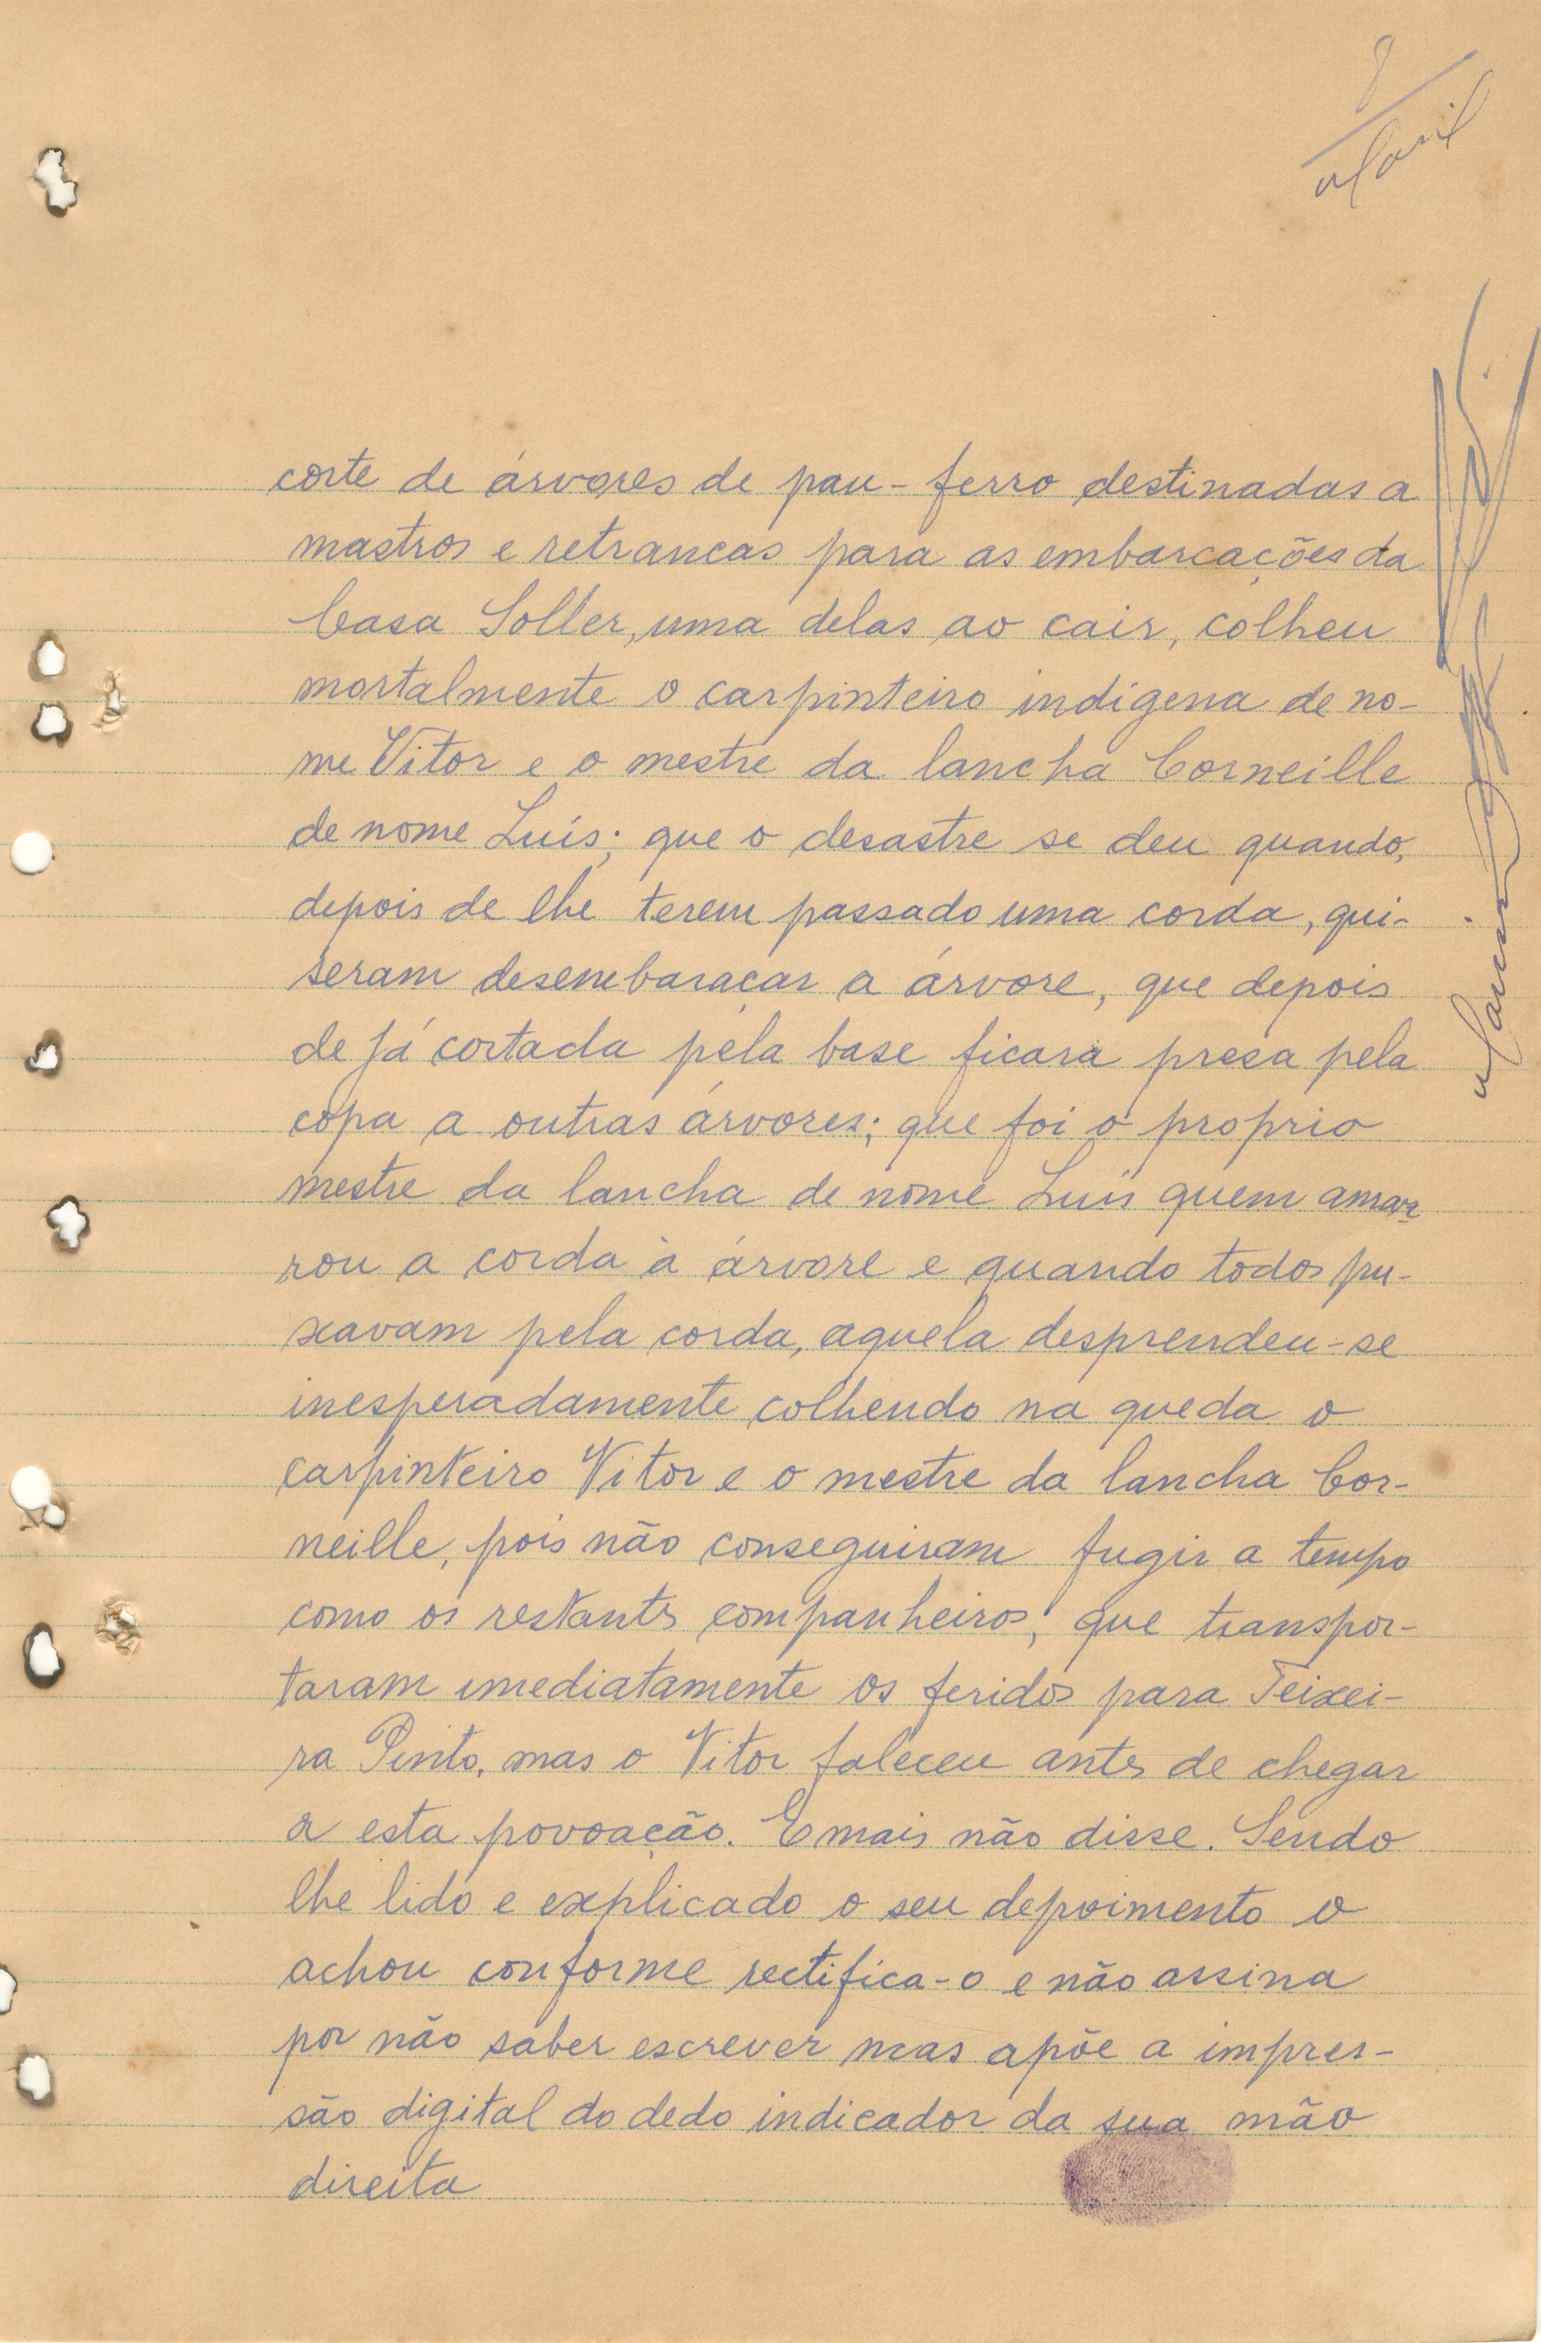 8
corte de árvores de pau-ferro destinadas a
mastros e retrancas para as embarcações da
Casa Soller, uma delas ao cair, colheu
mortalmente o carpinteiro indígena de no-
me Vitor e o mestre da lancha Corneille
de nome Luís; que o desastre se deu quando,
depois de lhe terem passado uma corda, qui-
seram desembaraçar a árvore, que depois
de já cortada pela base ficara presa pela
copa a outras árvores; que foi o proprio
mestre da lancha de nome Luís quem amar-
rou a corda à árvore e quando todos pu-
xavam pela corda, aquela desprendeu-se
inesperadamente colhendo na queda o
carpinteiro Vitor e o mestre da lancha Cor-
neille, pois não conseguiram fugir a tempo
como os restantes companheiros; que transpor-
taram imediatamente os feridos para Teixei-
ra Pinto, mas o Vitor faleceu antes de chegar
a esta povoação. E mais não disse. Sendo
lhe lido e explicado o seu depoimento o
achou conforme rectifica-o e não assina
por não saber escrever mas apõe a impres-
são digital do dedo indicador da sua mão
direita